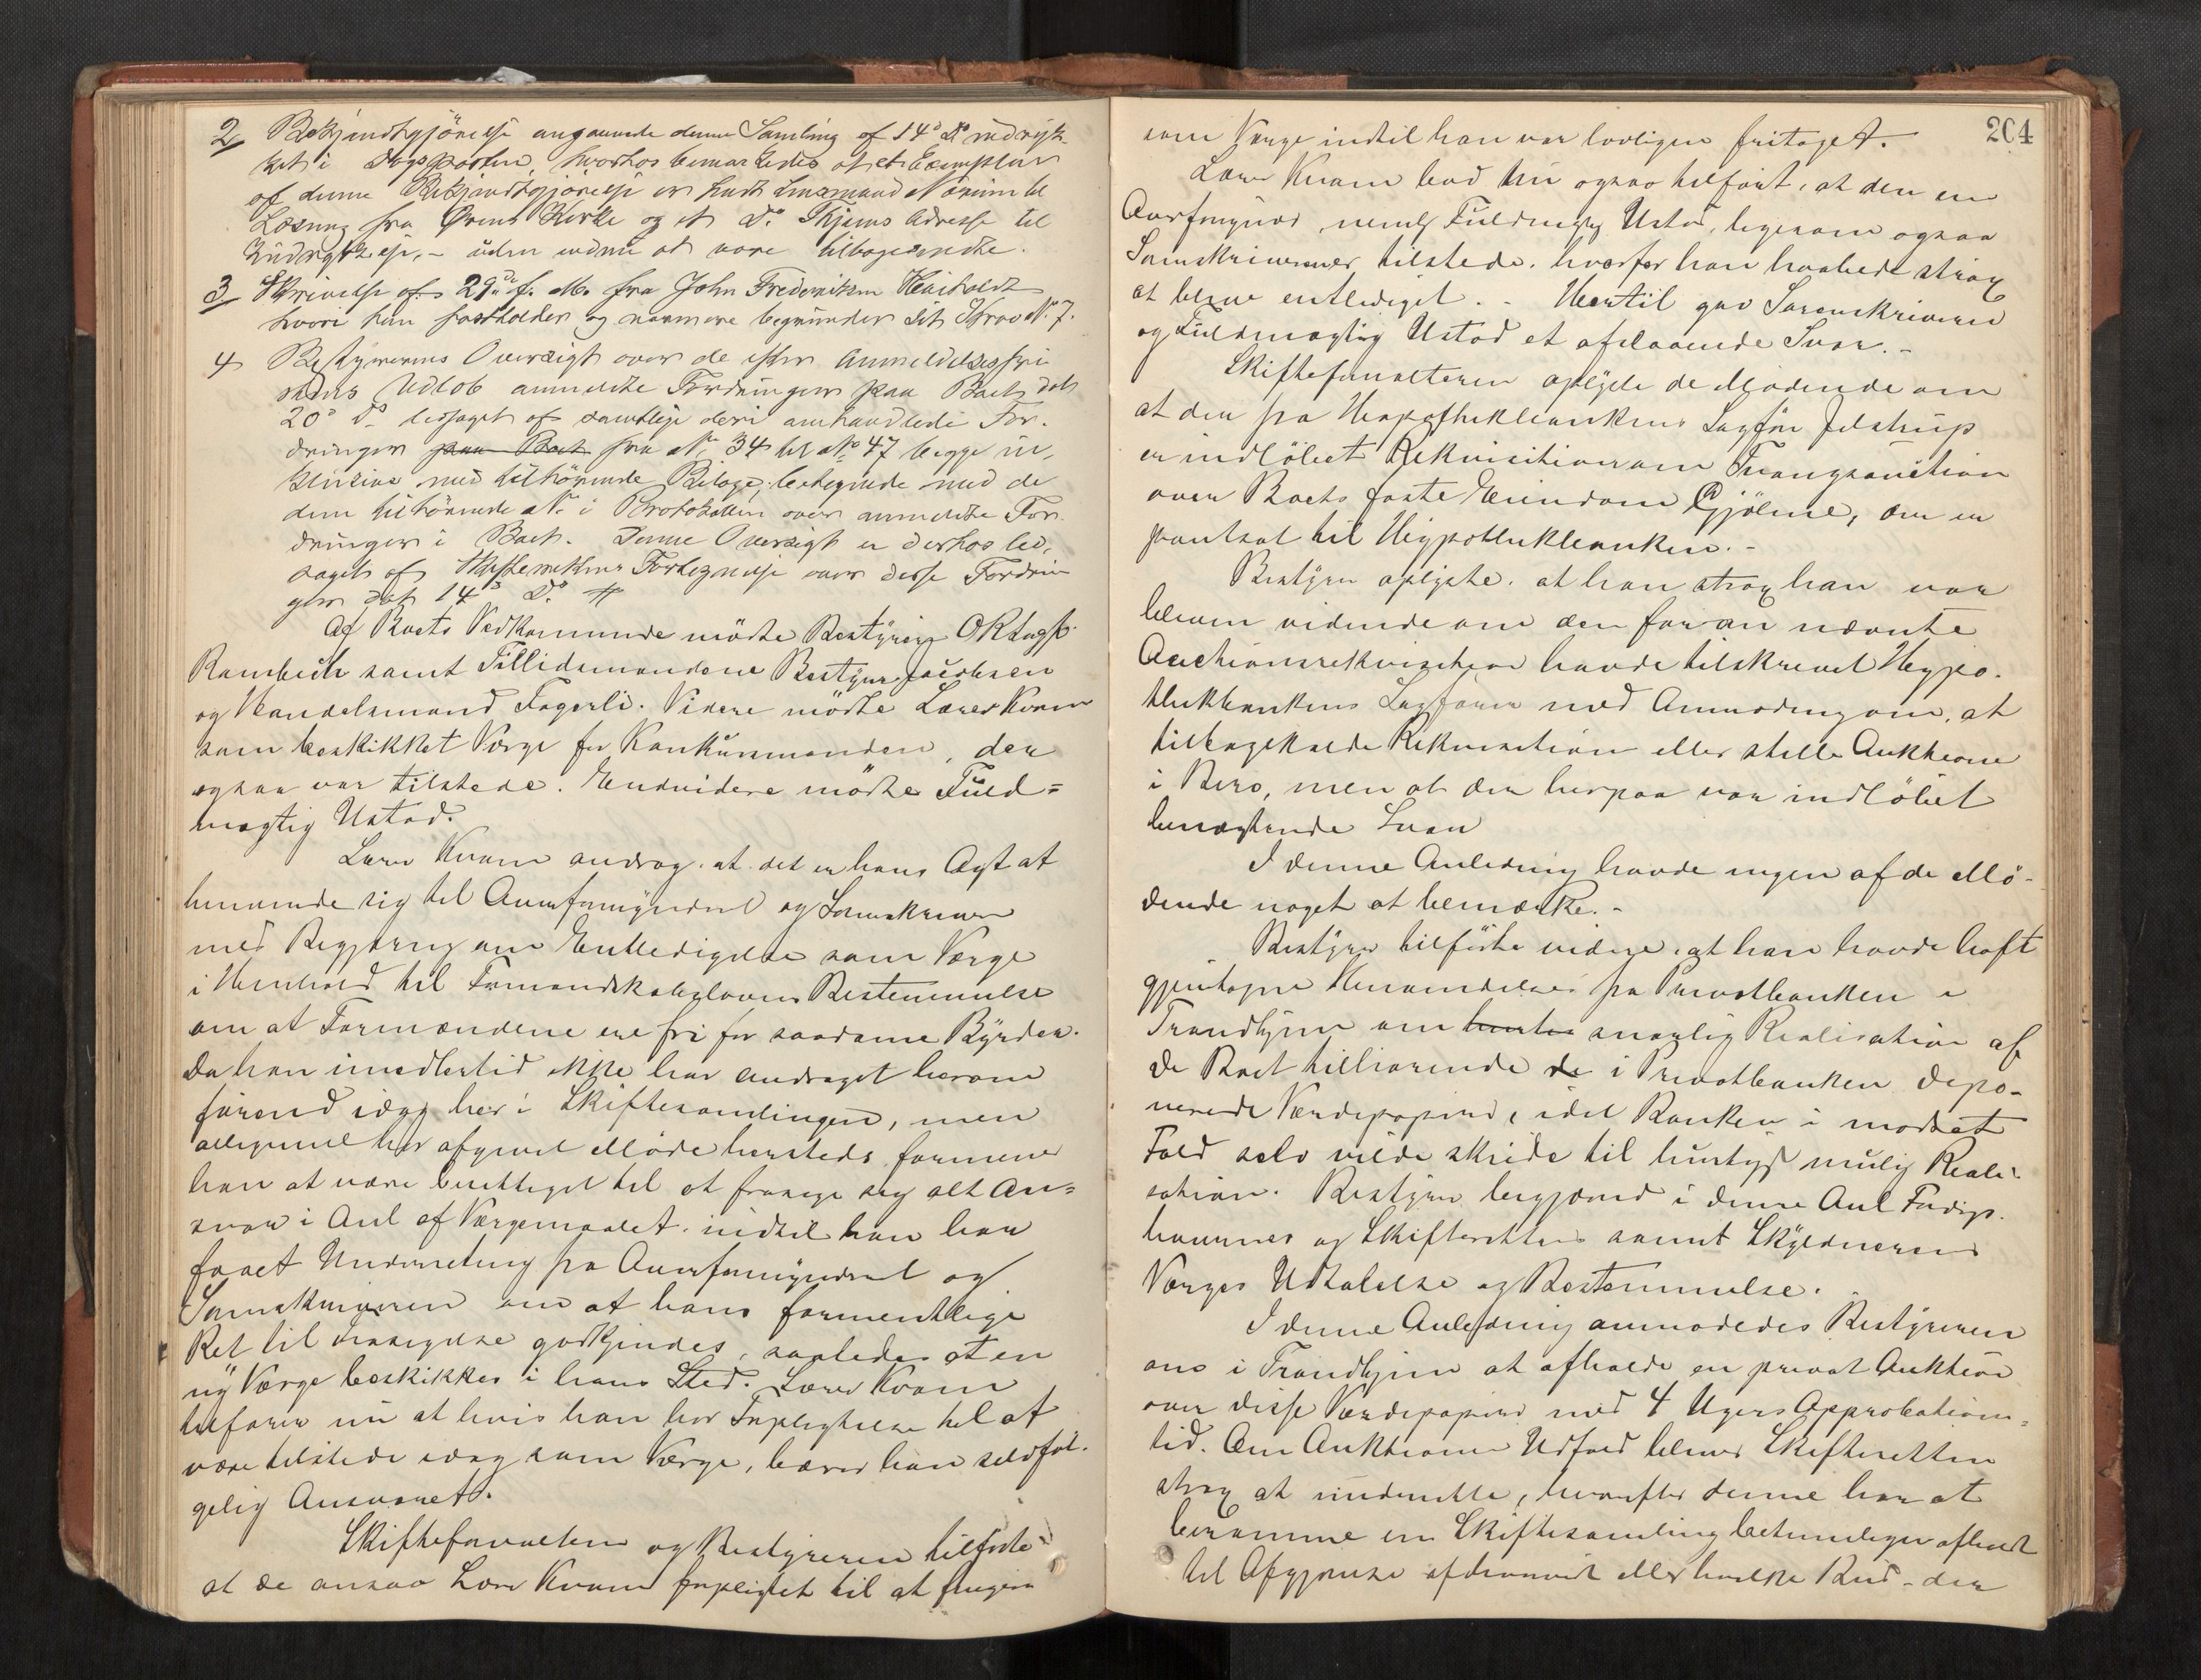 2/ Bekjendtgjörelse angaaende denne Samling af 14de ds indryk-
ket i Dagsposten, hvorhos bemærkedes at et Exemplar
af denne Bekjendtgjörelse er sendt Lensmand Norum til
Læsning fra Örens Kirke og et Do. Thjems Adresse til
Kundgjörelse, - uden endnu at være tilbagesendte.
3/ Skrivelse af 29de f. M. fra John Frederiksen
hvori han fastholder og nærmere begrunder sit Krav No. 7.
4 Bestyrerens Oversigt over de efter Anmeldelsesfri
stens Udlöb anmeldte Fordringer paa Boet dat
20de ds ledsaget af samtlige deri omhandlede For-
dringer paa Boet fra No. 34 til No. 47 begge in-
klusive med tilhörende Bilage, betegnede med de
dem tilhörende No. i Protokollen over anmeldte For-
dringer i Boet. Denne Oversigt er derhos led-
saget af Skifterettens Fortegnelse over disse Fordrin
ger dat 14de Ds.
Af Boets Vedkommende mödte Bestyrer ORSagf.
Rambech samt Tillidsmændene Bestyrer Jacobsen
og Handelsmand Fagerli. Videre mödte Lærer Kvam
som beskikket Værge for Konkursmanden, der
ogsaa var tilstede. Endvidere mödte Fuld=
mægtig Ustad.
Lærer Kvam androg at det er hans Agt at
henvende sig til Overformynderiet og Sorenskriver
med Begjæring om Entledigelse som Værge
i Henhold til Formandskabslovens Bestemmelse
om at Formændene ere fri for saadanne Byrder.
Da han imidlertid ikke har andraget herom
förend idag her i Skiftesamlingen, men
alligevel har afgivet Möde hersteds formener
han at være berettiget til at frasige sig alt An=
svar i Anl af Værgemaalet indtil han har
faaet Underretning fra Overformynderiet og
Sorenskriveren om at hans formentlige
Ret til Frasigelse godkjendes, saaledes at en
ny Værge beskikkes i hans Sted. Lærer Kvam
tilförer nu at hvis han har Forpligtelse til at
være tilstede idag som Værge, bærer han selvföl-
gelig Ansvaret.
Skifteforvalteren og Bestyreren tilförte
at de ansaa Lærer Kvam forpligtet til at fungere
204
som Værge indtil han var lovligen fritaget.
Lærer Kvam bad nu ogsaa tilfört, at den ene
Overformynder nemlig Fuldmægtig Ustad, ligesom ogsaa
Sorenskriveren er tilstede, hvorfor han haabede strax
at blive entlediget. - Hertil gav Sorenskriveren
og Fuldmægtig Ustad et afslaaende Svar. -
Skifteforvalteren oplyste de Mödende om
at der fra Hypothekbankens Sagförer Jelstrup
er indlöbet Rekvisition om Tvangsauktion
over Boets faste Eiendom Gjölme, der er
pantsat til Hypothekbanken. -
Bestyrer oplyste at han strax han var
bleven vidende om den foran nævnte
Auctionsrekvisition havde tilskrevet Hypo-
thekbankens Sagförer med Anmodning om at
tilbagekalde Rekvisition eller stille Auktionen
i Bero, men at der herpaa var indlöbet
benægtende Svar
I denne Anledning havde ingen af de Mö-
dende noget at bemærke. -
Bestyrer tilförte videre at han havde havt
gjentagne Henvendelser fra Privatbanken i
Trondhjem om snarlig Realisation af
de Boet tilhörende de i Privatbanken depo-
nerede Værdipapirer, idet Banken i modsat
Fald selv vilde skride til hurtigst mulig Reali-
sation. Bestyrer begjærede i denne Anl Fordrings-
havernes og Skifterettens samt Skyldnerens
Værges Udtalelse og Bestemmelse.
I denne Anledning anmodedes Bestyreren
om i Trondhjem at afholde en privat Auktion
over disse Værdipapirer med 4 Ugers Approbations=
tid. Om Auktionens Udfald bliver Skifteretten
strax at underrette, hvorefter denne har at
beramme en Skiftesamling betimeligen afholdt
til Afgjörelse af hvorvidt eller hvilke Bud - der